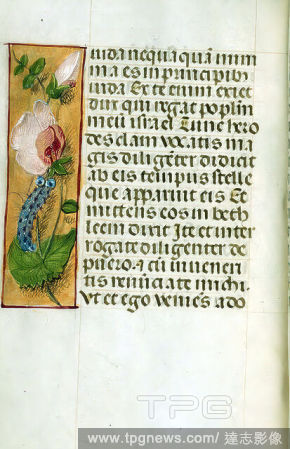 iuda nequaquā mini
ma es in principib⁹
iuda Ex te enim exiet
dux qui regat poplm̄
meū israel Tunc hero
des clam vocatis ma
gis diligēter didicit
ab eis tempus stelle
que apparuit eis Et
mittens eos in beth
leem dixit Ite et inter
rogate diligenter de
puero ⁊ cū inueneri
tis renūciate michi
Vt et ego veniēs ado
TPG
www.tpgnews.com/ 達志影像